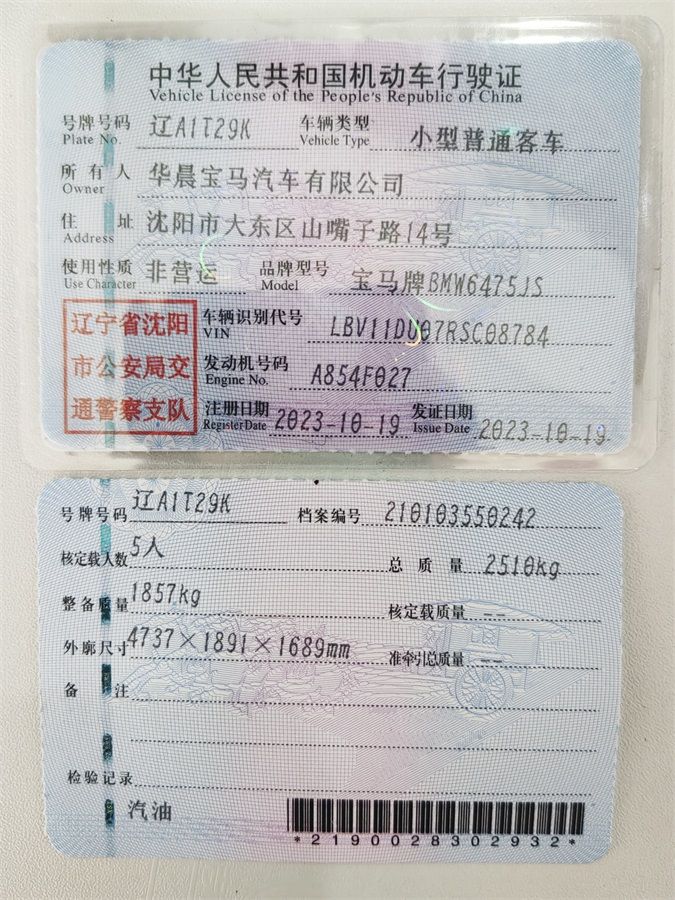 中华人民共和国机动车行驶证
Vehicle License of the People's Republic of China
号牌号码 辽A1T29K 车辆类型 小型普通客车
Plate No. Vehicle Type
所有人 华晨宝马汽车有限公司
Owner
住址 沈阳市大东区山嘴子路14号
Address
使用性质 非营运 品牌型号 宝马牌BMW6475JS
Use Character Model
辽宁省沈阳
市公安局交
通警察支队
车辆识别代号 LBV11DU07RSC08784
VIN
发动机号码 A854F027
Engine No.
注册日期 2023-10-19 发证日期 2023-10-19
Register Date Issue Date
号牌号码 辽A1T29K 档案编号 210103550242
核定载人数 5人 总质量 2510kg
整备质量 1857kg 核定载质量 --
外廓尺寸 4737×1891×1689mm 准牵引总质量 --
备注
检验记录
汽油
*2190028302932*